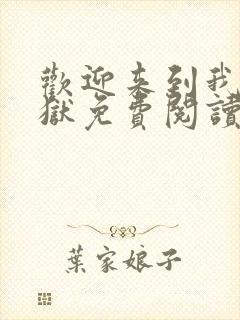 歡迎來到我
獄免費閱讀
葉家娘子